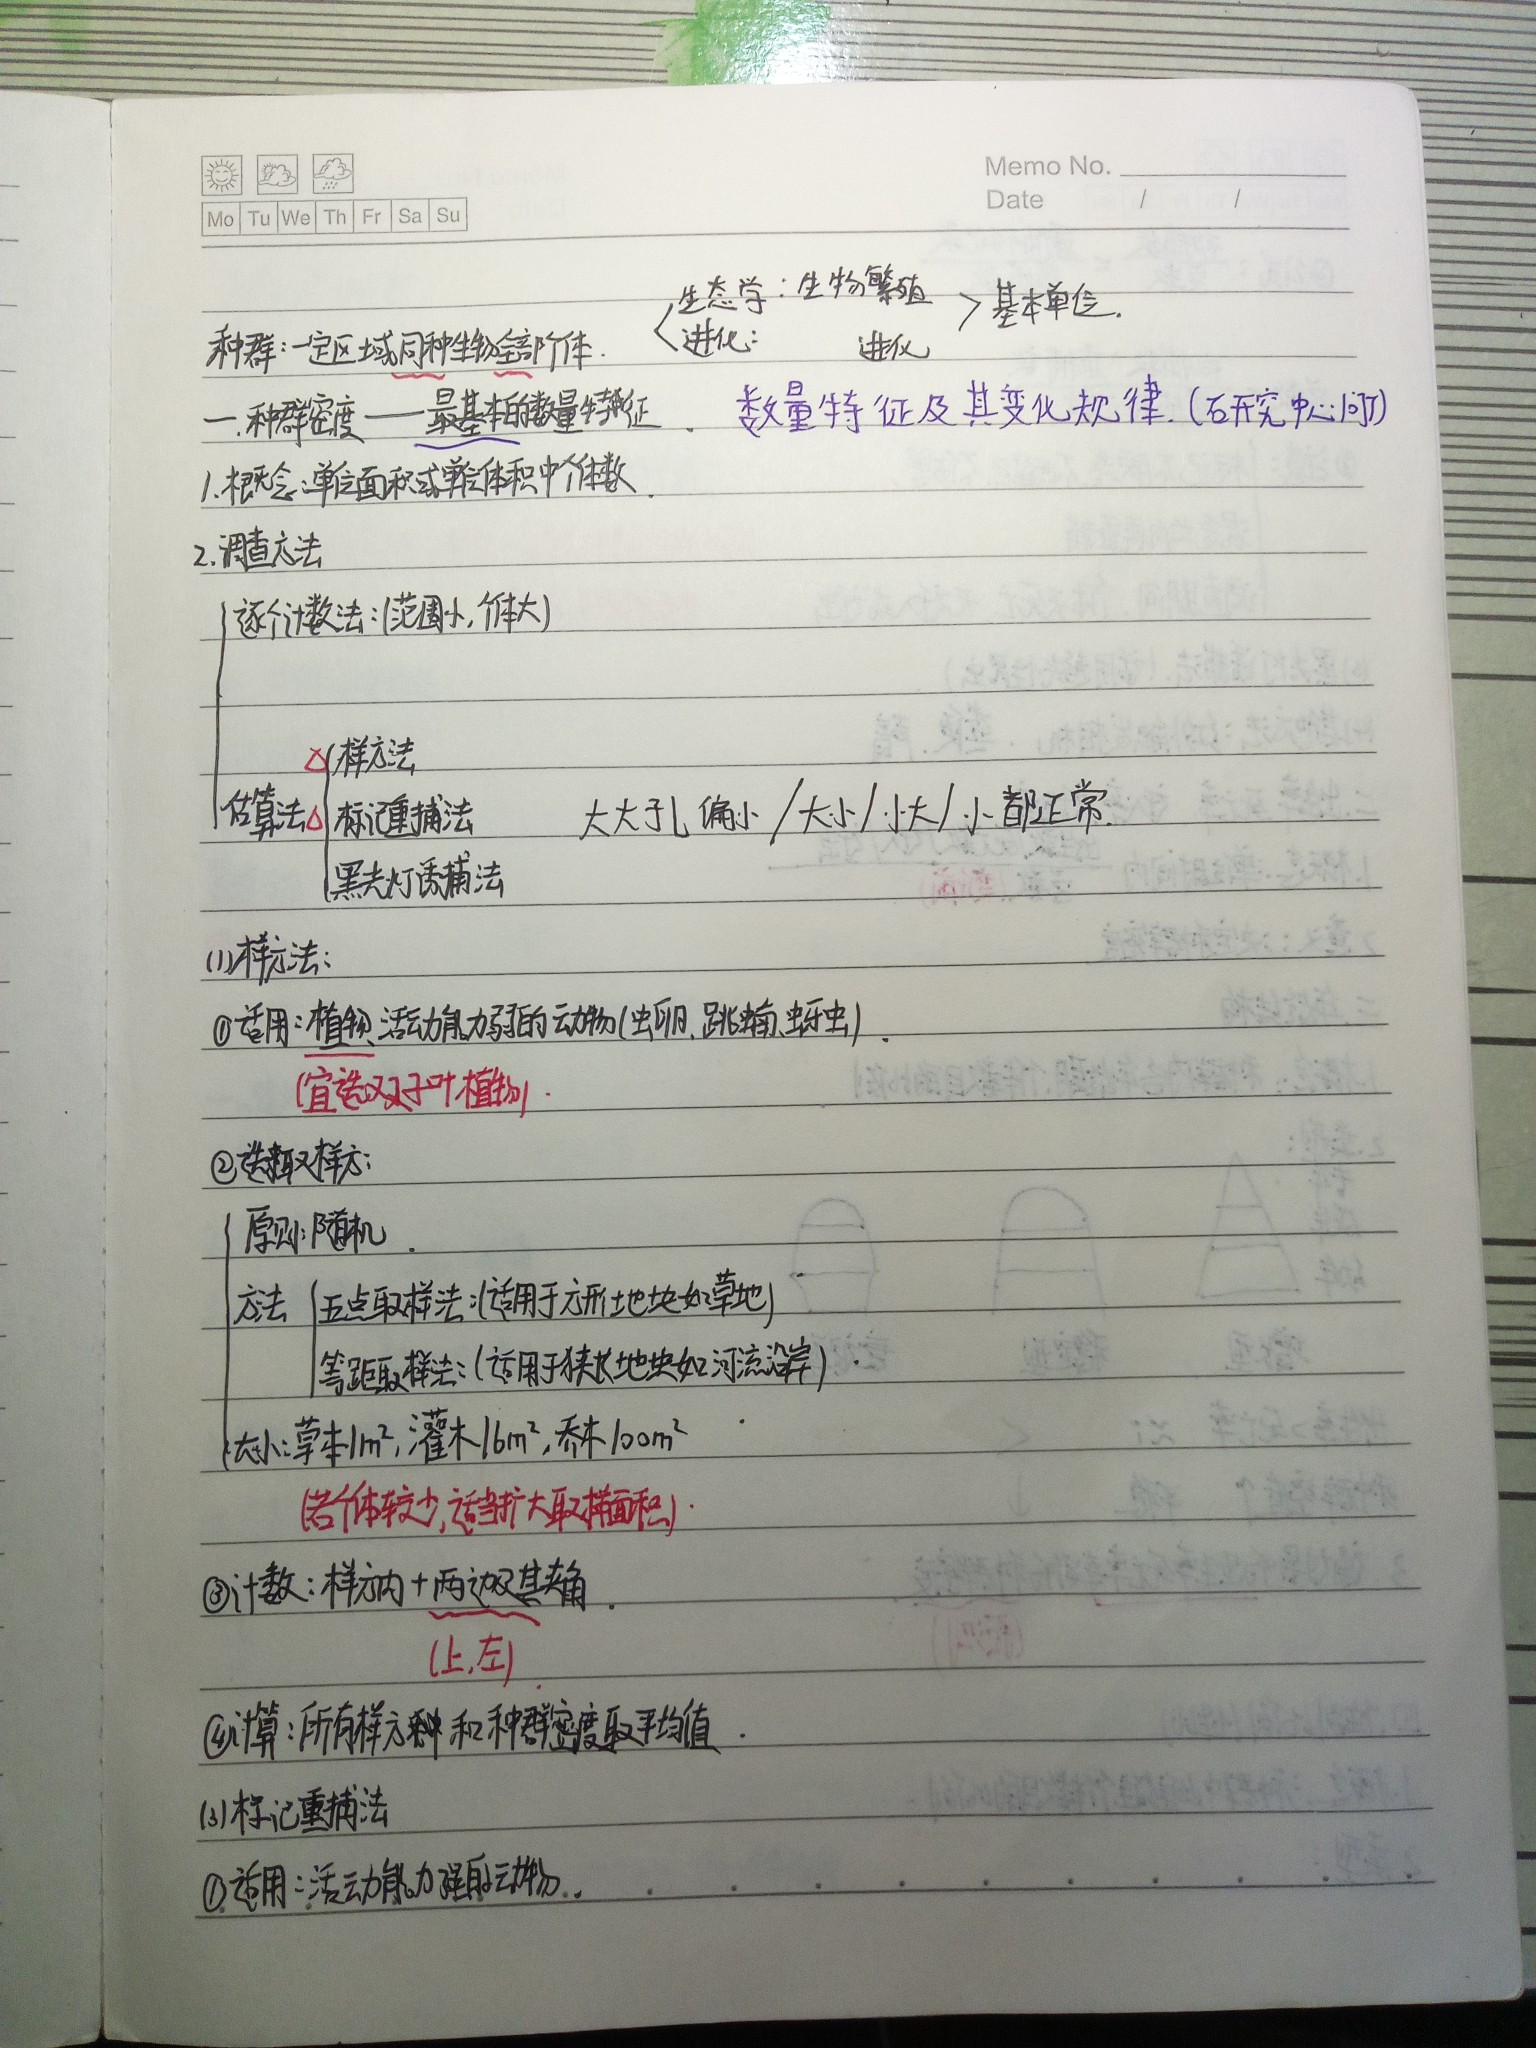 Memo No.
Mo Tu We Th Fr Sa Su
Date / /
生态学：生物繁殖 > 基本单位.
种群：一定区域同种生物全部个体. < 进化： 进化
一.种群密度——最基本的数量特征. 数量特征及其变化规律.(研究中心问)
1.概念：单位面积或单位体积中个体数.
2.调查方法
逐个计数法：(范围小,个体大)
△样方法
估算法△标记重捕法 大大于1 偏小/大小/小大/小都正常.
黑光灯诱捕法
(1)样方法：
①适用：植物、活动能力弱的动物(虫卵、跳蝻、蚜虫).
(宜选双子叶植物).
②选取样方：
原则：随机.
方法 五点取样法：(适用于方形地块如草地)
等距取样法：(适用于狭长地块如河流沿岸).
大小：草本1m²,灌木16m²,乔木100m²
(若个体较少,适当扩大取样面积).
③计数：样方内+两边及其夹角.
(上,左).
④计算：所有样方种和种群密度取平均值.
(3)标记重捕法
①适用：活动能力强的动物.